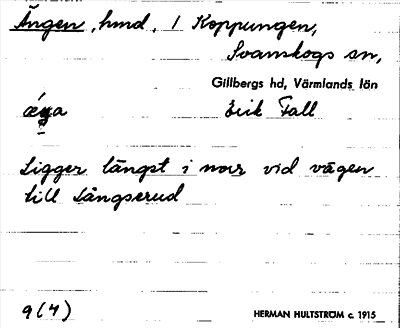 Ängen, hmd, i Koppungen,
Svanskogs sn,
Gillbergs hd, Värmlands län
Erik Fall
Ligger längst i norr vid vägen
till Långserud
9(4)
HERMAN HULTSTRÖM c. 1915